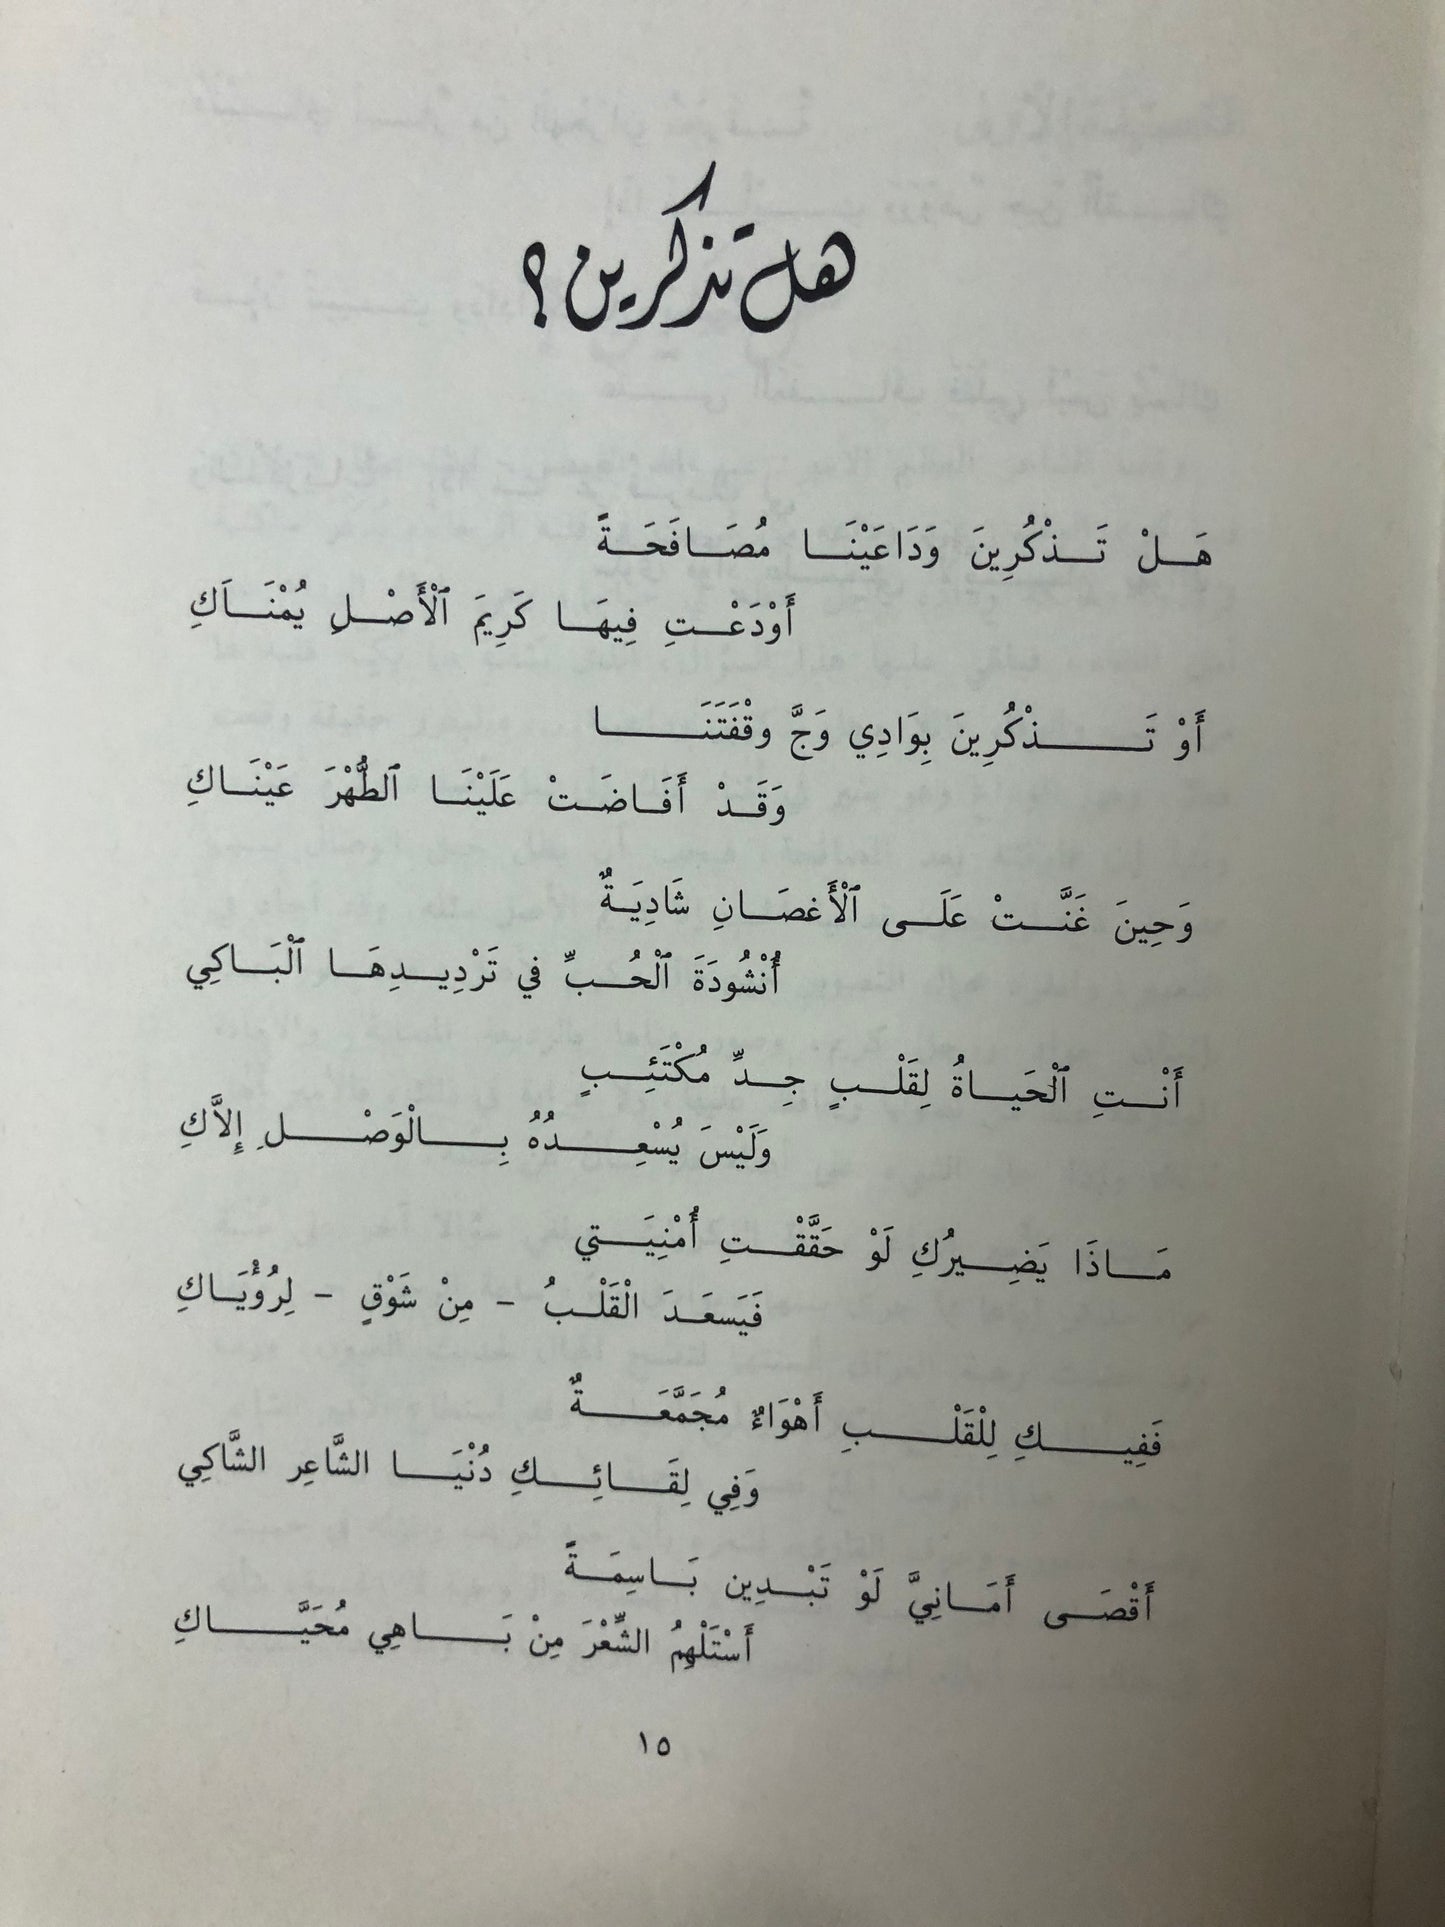 هل تذكرين ؟
هَـلْ تَـذْكُرِينَ وَدَاعَيْنَـا مُصَـافَحَـةً
أَوْدَعْـتِ فِيهَـا كَرِيمَ ٱلْأَصْـلِ يُمْنَـاَكِ
أَوْ تَـذْكُرِينَ بِوَادِي وَجَّ وقْفَتَنَـا
وَقَـدْ أَفَـاضَـتْ عَلَيْنَـا ٱلطُّهْرَ عَيْنَـاكِ
وَحِينَ غَنَّـتْ عَلَـى ٱلْأَغصَـانِ شَادِيَـةٌ
أُنْشُودَةَ ٱلْحُـبِّ في تَرْدِيـدِهَـا ٱلْبَـاكِي
أَنْـتِ ٱلْحَيَـاةُ لِقَلْـبٍ جِـدِّ مُكْتَئِـبٍ
وَلَيْسَ يُسْعِـدُهُ بِـالْوَصْـلِ إِلاَّكِ
مَـاذَا يَضِـيرُكِ لَوْ حَقَّقْـتِ أُمْنِيَـتي
فَيَسعَـدَ الْقَلْـبُ – مِنْ شَوْقٍ – لِرُؤْيَـاكِ
فَفِيـكِ لِلْقَلْـبِ أَهْوَاءٌ مُجَمَّعَـةٌ
وَفِي لِقَـائِـكِ دُنْيَـا الشَّاعِرِ الشَّاكِي
أَقْصَـى أَمَـانِيَّ لَوْ تَبْـدِين بَـاسِمَـةً
أَسْتَلْهِمُ الشِّعْرَ مِنْ بَـاهِي مُحَيَّـاكِ
١٥